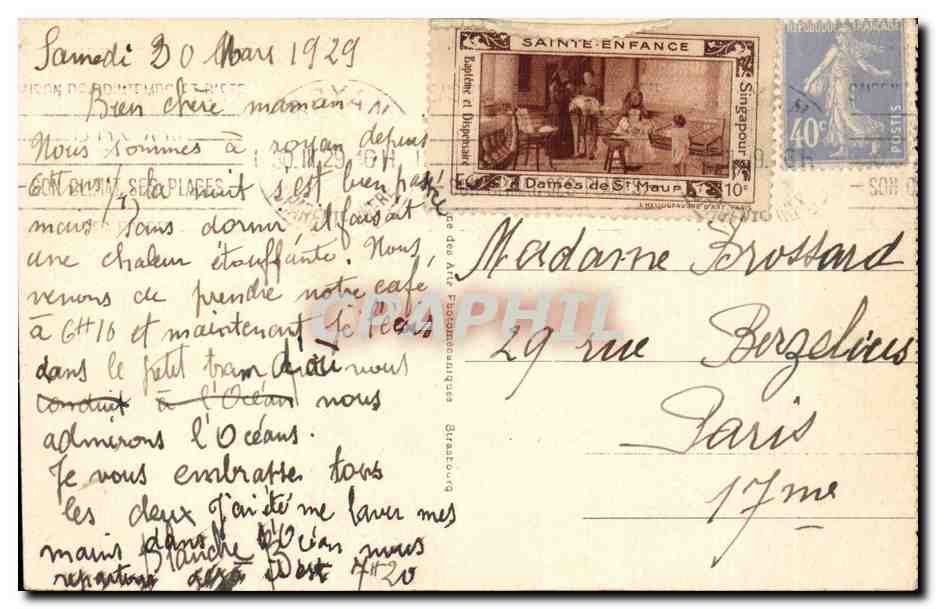 Samedi 30 Mars 1929
Bien chère maman
Nous sommes à royan depuis
la nuit s'est bien passée
mais sans dormir il faisait
une chaleur étouffante. Nous
venons de prendre notre café
à 6H10 et maintenant je t'écris
dans le petit tram d'où nous
conduit à l'Océan nous
admirons l'Océans.
Je vous embrasse tous
les deux J'ai été me laver mes
mains dans l'Océan nous
repartons 7H20
Blanche
SAINTE-ENFANCE
Baptême et Dispensaire
Singapour
Dames de St Maur
10c
REPUBLIQUE FRANÇAISE
40c
POSTES
SON PLAGES
Madame Brossard
29 rue Berzelius
Paris
17me
des Arts Photomécaniques Strasbourg
CPAPHIL